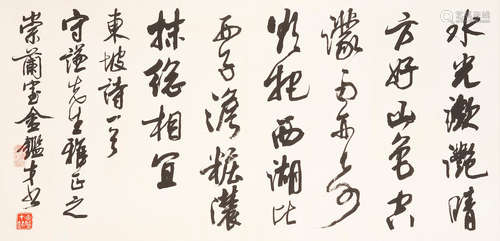 水光潋灧晴
方好山色空
濛雨亦奇
欲把西湖比
西子澹粧濃
抹總相宜
東坡詩一首
守謙先生雅正之
崇蘭室金鑑才書